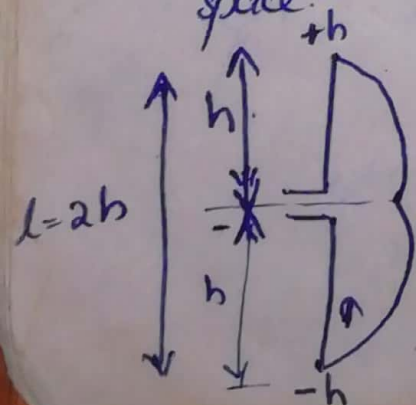 space.
+h
h
l=2h
-
h
-h